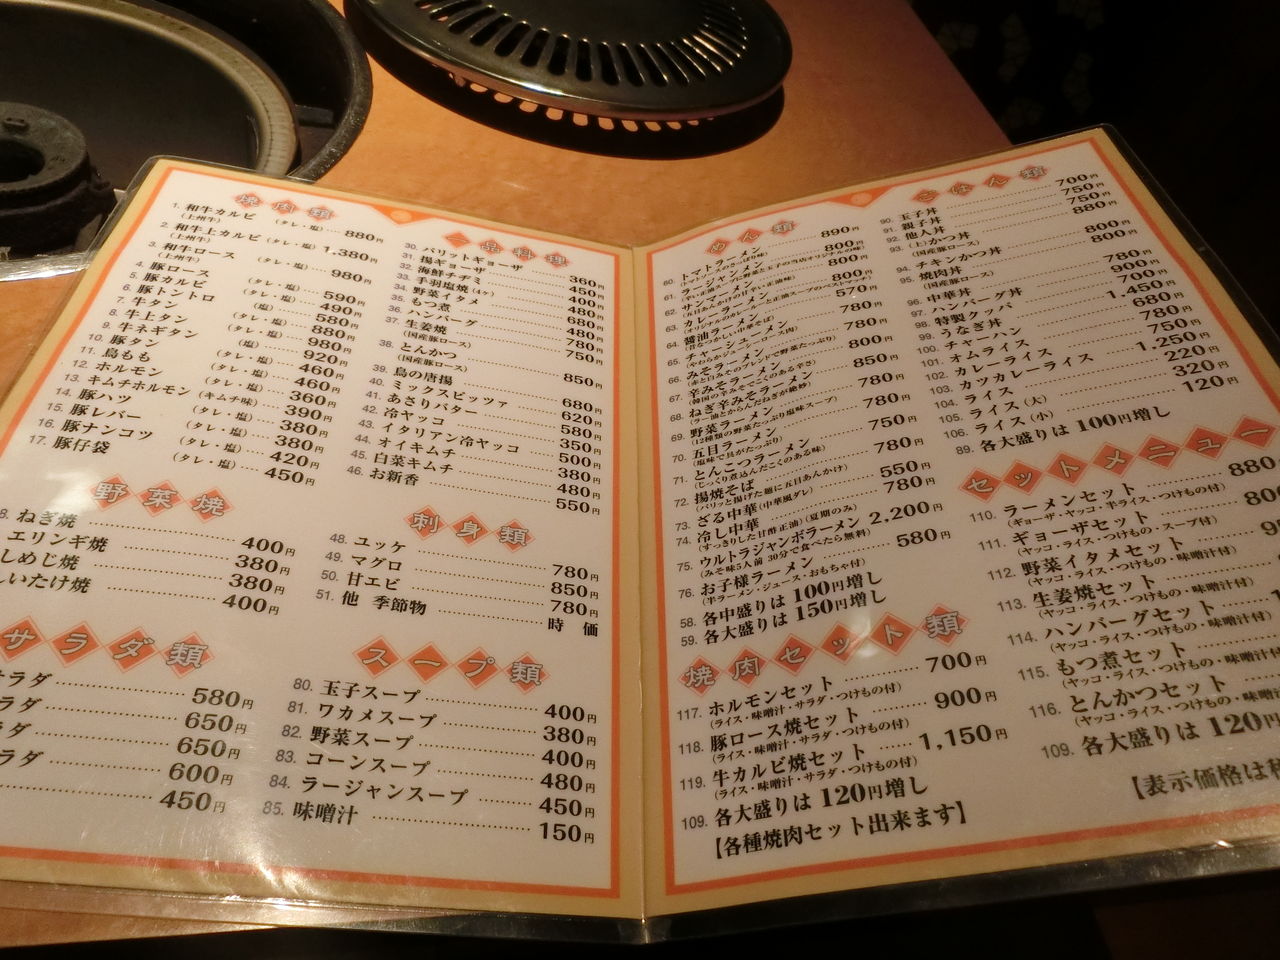 焼肉類
1. 和牛カルビ (タレ・塩) 880円
(上州牛)
2. 和牛上カルビ (タレ・塩) 1,380円
(上州牛)
3. 和牛ロース (タレ・塩) 980円
(上州牛)
4. 豚ロース (タレ・塩) 590円
5. 豚カルビ (タレ・塩) 490円
6. 豚トントロ (タレ・塩) 580円
7. 牛タン (タレ・塩) 880円
8. 牛上タン (タレ・塩) 980円
9. 牛ネギタン (タレ・塩) 920円
10. 豚タン (タレ・塩) 460円
11. 鳥もも (タレ・塩) 460円
12. ホルモン (タレ・塩) 360円
13. キムチホルモン (キムチ味) 390円
14. 豚ハツ (タレ・塩) 380円
15. 豚レバー (タレ・塩) 380円
16. 豚ナンコツ (タレ・塩) 420円
17. 豚仔袋 (タレ・塩) 450円
野菜焼
ねぎ焼 400円
エリンギ焼 380円
しめじ焼 380円
しいたけ焼 400円
サラダ類
サラダ 580円
ラダ 650円
ラダ 650円
ラダ 600円
450円
一品料理
30. パリットギョーザ 360円
31. 揚ギョーザ 400円
32. 海鮮チヂミ 450円
33. 手羽塩焼(4ヶ) 400円
34. 野菜イタメ 480円
35. もつ煮 480円
36. ハンバーグ 680円
37. 生姜焼 780円
(国産豚ロース)
38. とんかつ 750円
(国産豚ロース)
39. 鳥の唐揚 850円
40. ミックスピッツァ 680円
41. あさりバター 620円
42. 冷ヤッコ 580円
43. イタリアン冷ヤッコ 350円
44. オイキムチ 500円
45. 白菜キムチ 380円
46. お新香 480円
550円
刺身類
48. ユッケ 780円
49. マグロ 850円
50. 甘エビ 780円
51. 他 季節物 時価
スープ類
80. 玉子スープ 400円
81. ワカメスープ 380円
82. 野菜スープ 400円
83. コーンスープ 480円
84. ラージャンスープ 450円
85. 味噌汁 150円
めん類
60. トマトラーメン 890円
61. ラージャンメン 800円
62. サンマーメン 800円
63. カレーラーメン 800円
64. 醤油ラーメン 570円
65. チャーシューメン 780円
66. みそラーメン 780円
67. 辛みそラーメン 800円
68. ねぎ辛みそラーメン 850円
69. 野菜ラーメン 780円
(12種類の野菜たっぷり塩味スープ)
70. 五目ラーメン 780円
(塩味で具がたっぷり)
71. とんこつラーメン 750円
(じっくり煮込んだこくのある味)
72. 揚焼そば 780円
(パリッと揚げた麺に五目あんかけ)
73. ざる中華 (中華風ダレ) 550円
74. 冷し中華 (夏期のみ) 780円
(すっきりした甘酢正油)
75. ウルトラジャンボラーメン 2,200円
(みそ味5人前 30分で食べたら無料)
76. お子様ラーメン 580円
(半ラーメン・ジュース・おもちゃ付)
58. 各中盛りは 100円増し
59. 各大盛りは 150円増し
焼肉セット類
117. ホルモンセット 700円
(ライス・味噌汁・サラダ・つけもの付)
118. 豚ロース焼セット 900円
(ライス・味噌汁・サラダ・つけもの付)
119. 牛カルビ焼セット 1,150円
(ライス・味噌汁・サラダ・つけもの付)
109. 各大盛りは 120円増し
【各種焼肉セット出来ます】
ごはん類
90. 玉子丼 700円
91. 親子丼 750円
92. 他人丼 880円
93. (上)かつ丼 800円
(国産豚ロース)
94. チキンかつ丼 800円
95. 焼肉丼
(国産豚ロース)
96. 中華丼 780円
97. ハンバーグ丼 900円
98. 特製クッパ 700円
99. うなぎ丼 1,450円
100. チャーハン 680円
101. オムライス 780円
102. カレーライス 750円
103. カツカレーライス 1,250円
104. ライス 220円
105. ライス(大) 320円
106. ライス(小) 120円
89. 各大盛りは 100円増し
セットメニュー
110. ラーメンセット 880
(ギョーザ・ヤッコ・半ライス・つけもの付)
111. ギョーザセット 800
(ヤッコ・ライス・つけもの・スープ付)
112. 野菜イタメセット
(ヤッコ・ライス・つけもの・味噌汁付)
113. 生姜焼セット
(ヤッコ・ライス・つけもの・味噌汁付)
114. ハンバーグセット
(ヤッコ・ライス・つけもの・味噌汁付)
115. もつ煮セット
(ヤッコ・ライス・つけもの・味噌汁付)
116. とんかつセット
(ヤッコ・ライス・つけもの・味噌汁付)
109. 各大盛りは 120円
【表示価格は